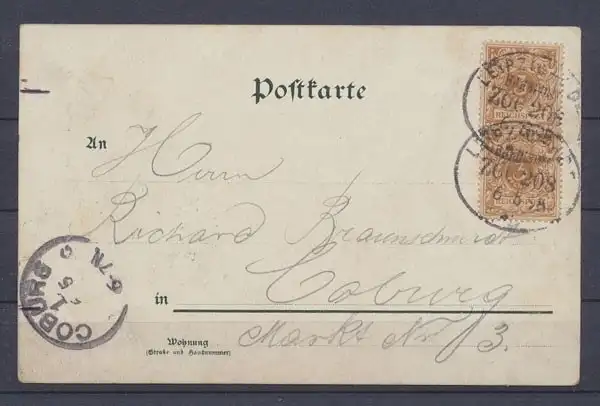 Postkarte
An
Herrn
Richard Braunschmidt
in Coburg
Wohnung
(Straße und Hausnummer)
Markt Nr. 3.
REICHSPOST
ZUG 208
ZUG 208
COBURG
6-7N